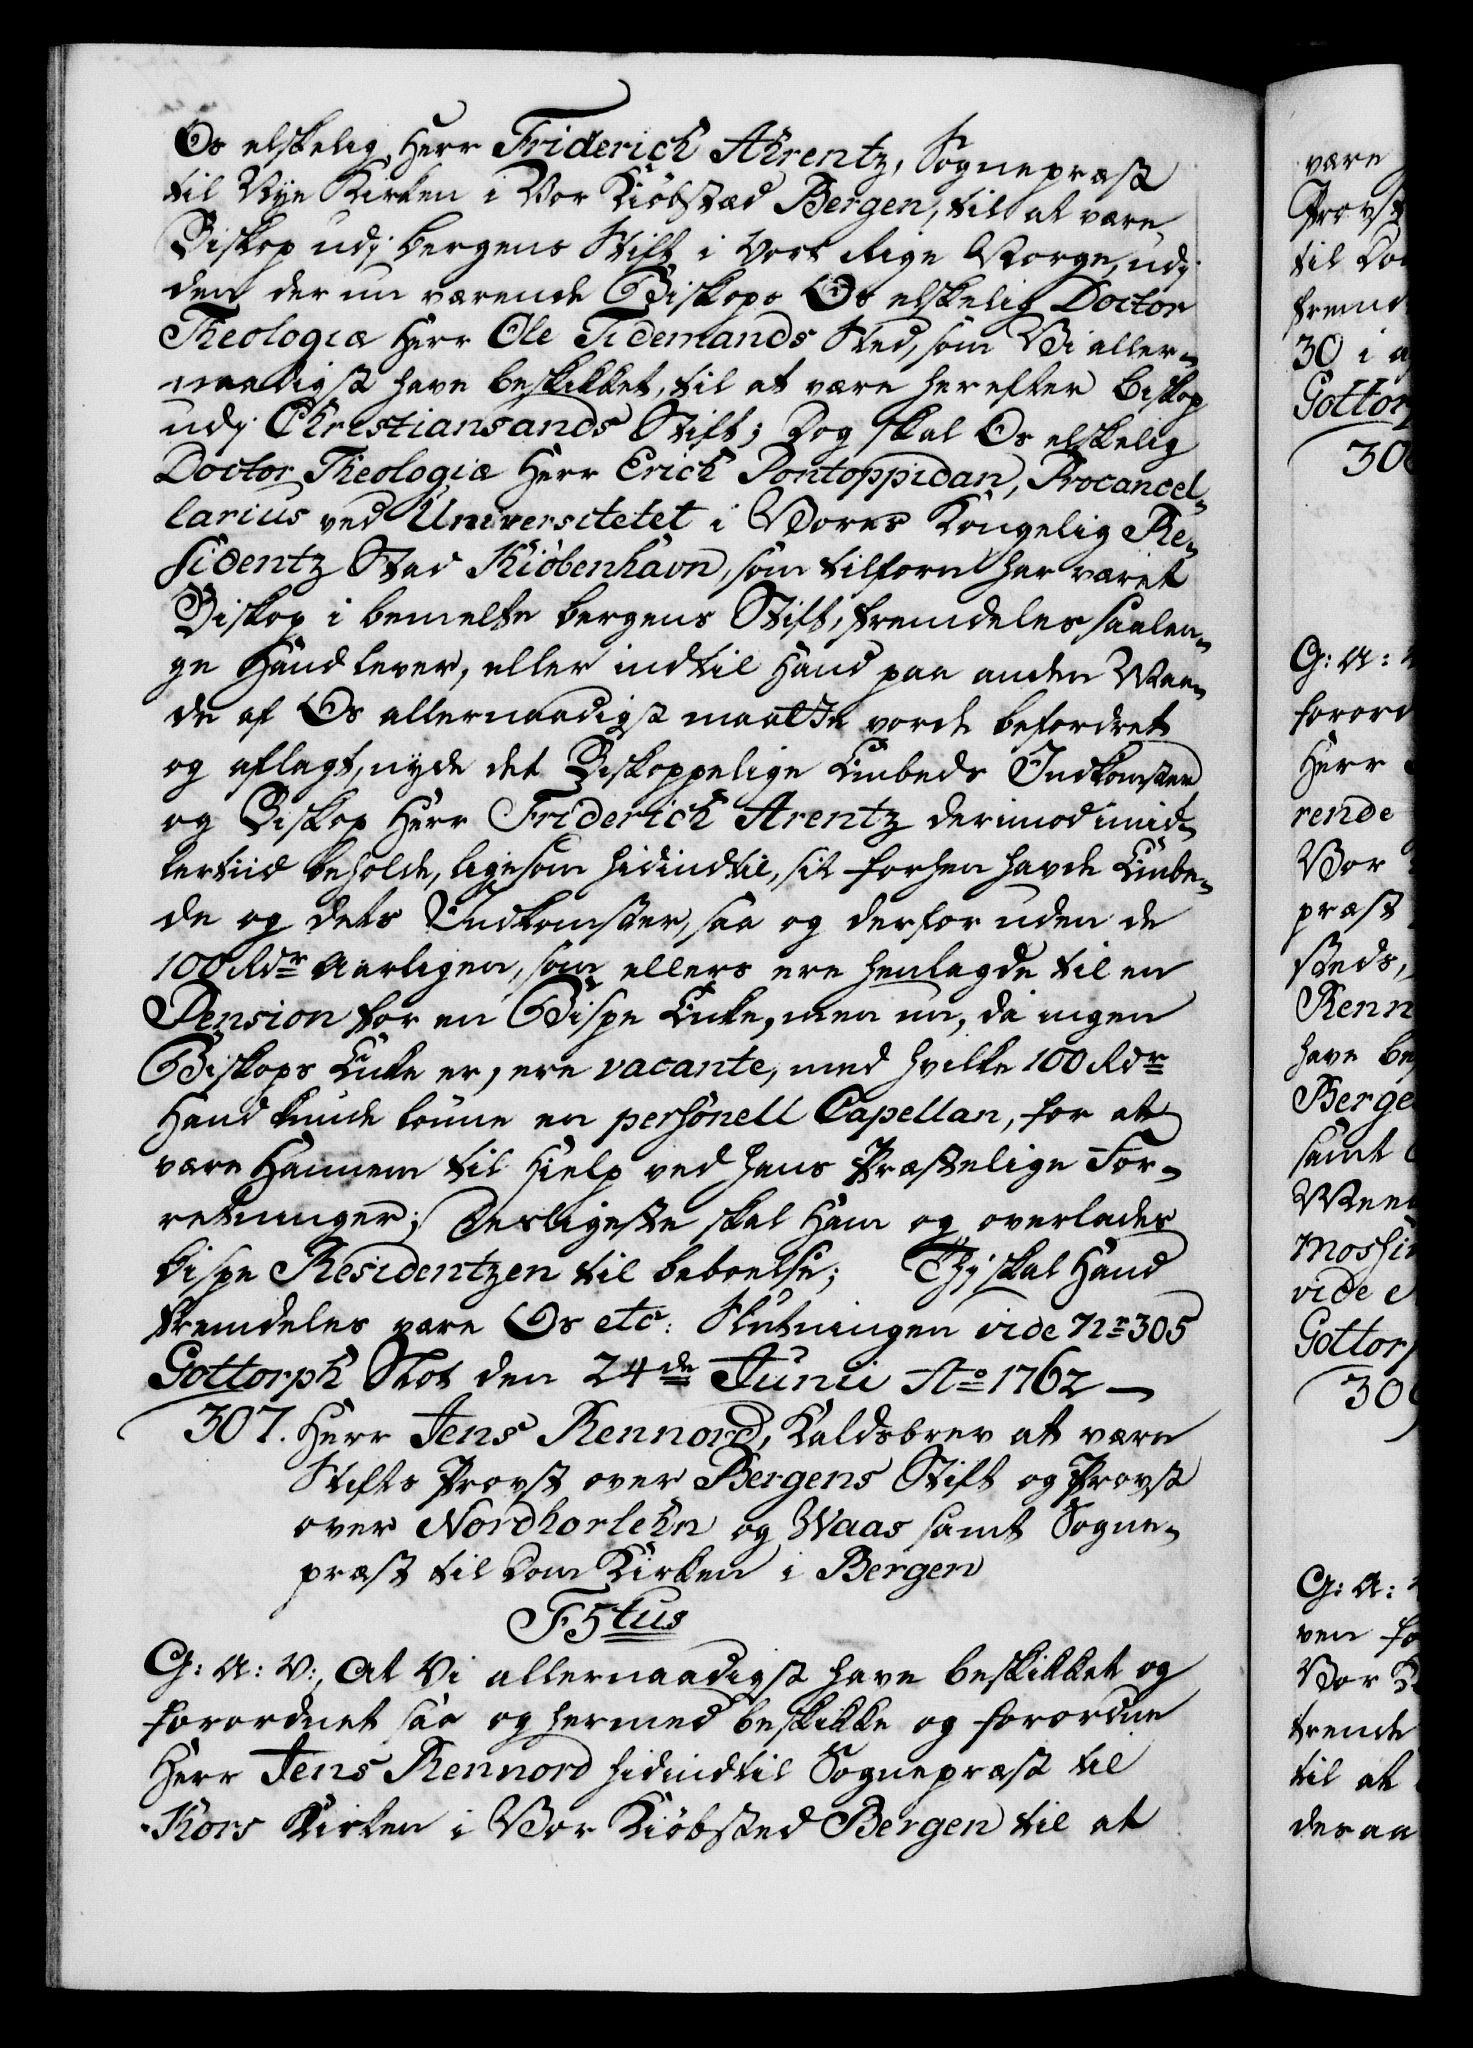 Os elskelig Herr Friderich Ahrentz, Sognepræst
til Nye Kirken i Vor Kiöbstæd Bergen, til at være
Biskop udj Bergens Stift i Vort Rige Norge, udj
den der nu værende Biskops Os elskelig Doctor
Theologiæ Herr Ole Tidemands Sted, som Vi aller-
naadigst have beskikket, til at være herefter Biskop
udj Christiansands Stift; Dog skal Os elskelig
Doctor Theologiæ Herr Erich Pontoppidan, Procancel-
larius ved Universitetet i Vores Kongelig Re-
sidentz Stad Kiöbenhavn, som tilforn har været
Biskop i bemelte Bergens Stift, fremdeles saalen-
ge Hand lever, eller indtil Hand paa anden Maa-
de af Os allernaadigst maatte vorde befordret
og aflagt, nyde det Biskoppelige Embeds Indkomster
og Biskop Herr Friderich Arentz derimod imid-
lertiid beholde, ligesom hidindtil, sit forhen havde Embe-
de og dets Indkomster, saa og derfor uden de
100 Rdr Aarligen, som ellers ere henlagde til en
Pension for en Bispe Enke, men nu, da ingen
Biskops Enke er, ere vacante, med hvilke 100 Rdr
Hand kunde lönne en personell Capellan, for at
være Hannem til Hielp ved hans Præstelige For-
retninger; Desligeste skal Ham og overlades
Bispe Residentzen til beboelse; Thj skal Hand
fremdeles være Os etc: Slutningen vide No 305
Gottorph Slot den 24de Junii Ao 1762
307. Herr Jens Rennord, Kaldsbrev at være
Stifts Provst over Bergens Stift og Provst
over Nordhorlehn og Waas samt Sogne-
præst til Dom Kirken i Bergen
F5tus
G: A: V:, At Vi allernaadigst have beskikket og
forordnet saa og hermed beskikke og forordne
Herr Jens Rennord hidindtil Sognepræst til
Kors Kirken i Vor Kiöbsted Bergen til at
være
til
30 i
rende
Vor
præst
have
samt
vide
G: A:
Vor
til at